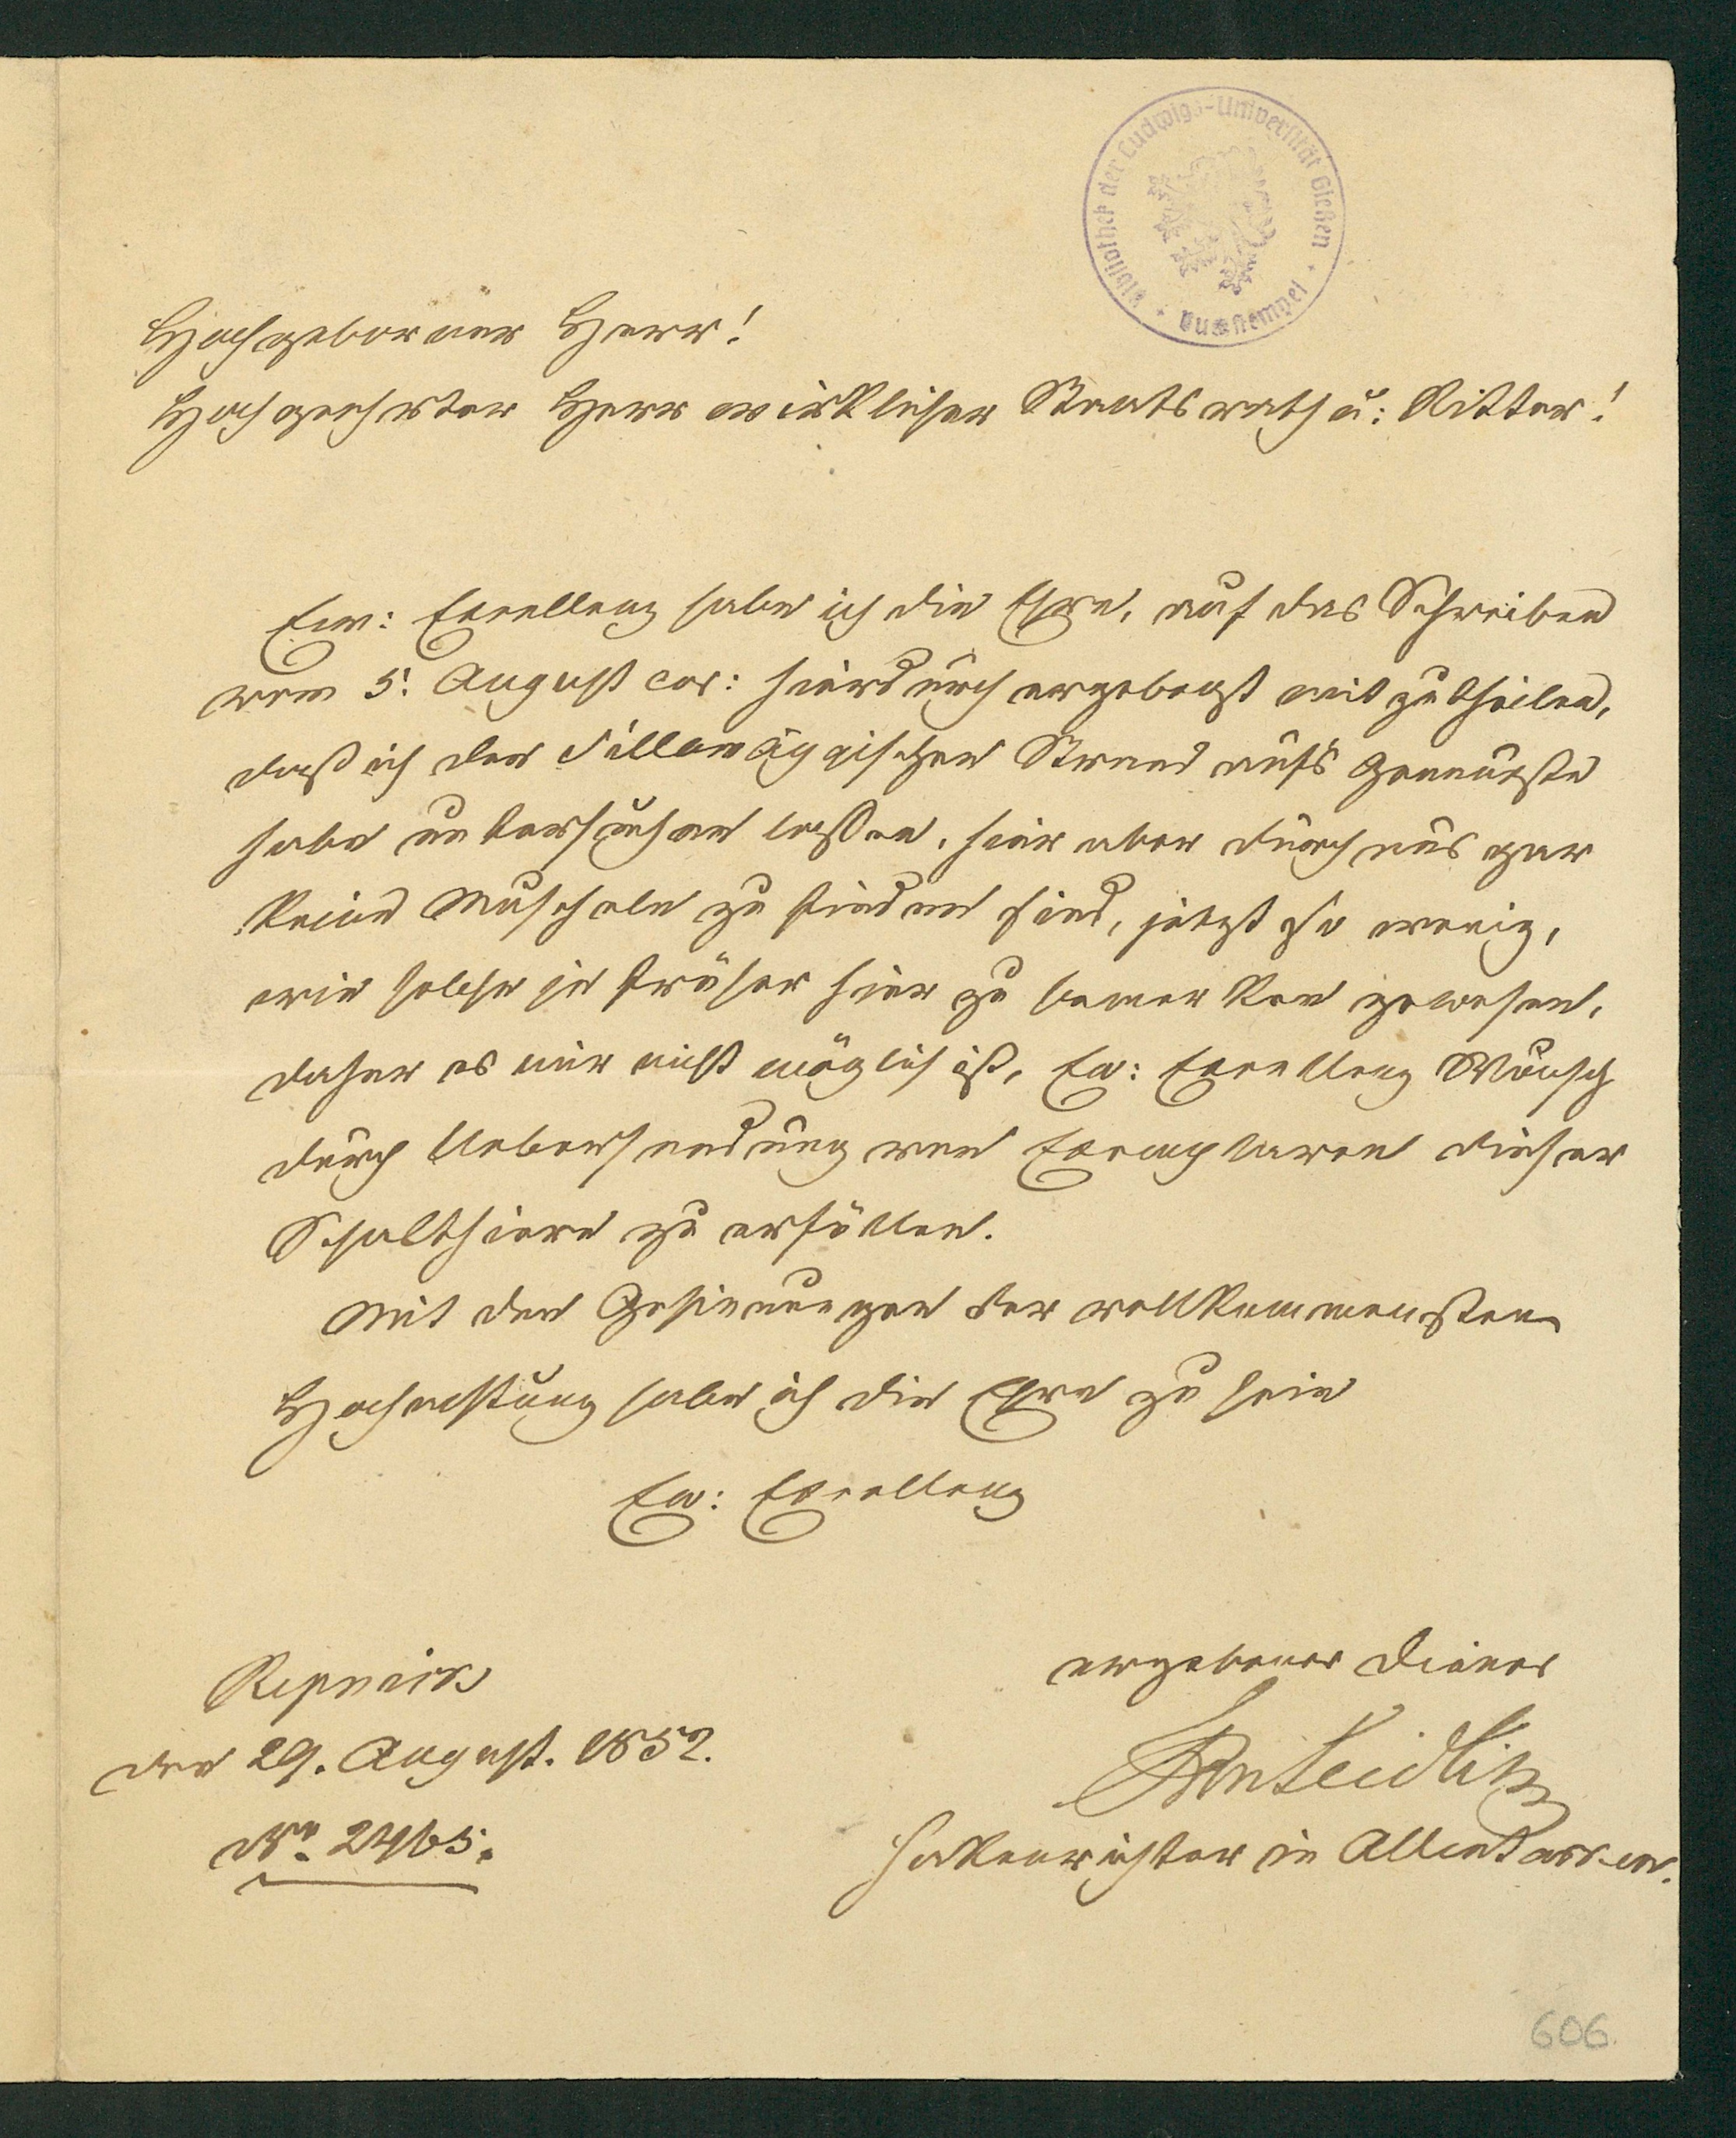 Bibliothek der Ludwigs-Universität Gießen
Druckstempel
Hochgeborner Herr!
Hochgeehrter Herr wirklicher Staatsrath u: Ritter!
Ew: Excellenz habe ich die Ehre, auf das Schreiben
vom 5. August cor: hierdurch ergebenst mitzutheilen,
daß ich den Sillamäggischen Strand aufs Genauste
habe untersuchen lassen, hier aber durchaus gar
keine Muscheln zu finden sind, jetzt so wenig,
wie solche je früher hier zu bemerken gewesen,
daher es mir nicht möglich ist, Ew: Excellenz Wunsch
durch Uebersendung von Exemplaren dieser
Schalthiere zu erfüllen.
Mit den Gesinnungen der vollkommensten
Hochachtung habe ich die Ehre zu sein
Ew: Excellenz
ergebener Diener
den 29. August. 1852.
No. 2465.
Hakenrichter in Allentacken.
606.